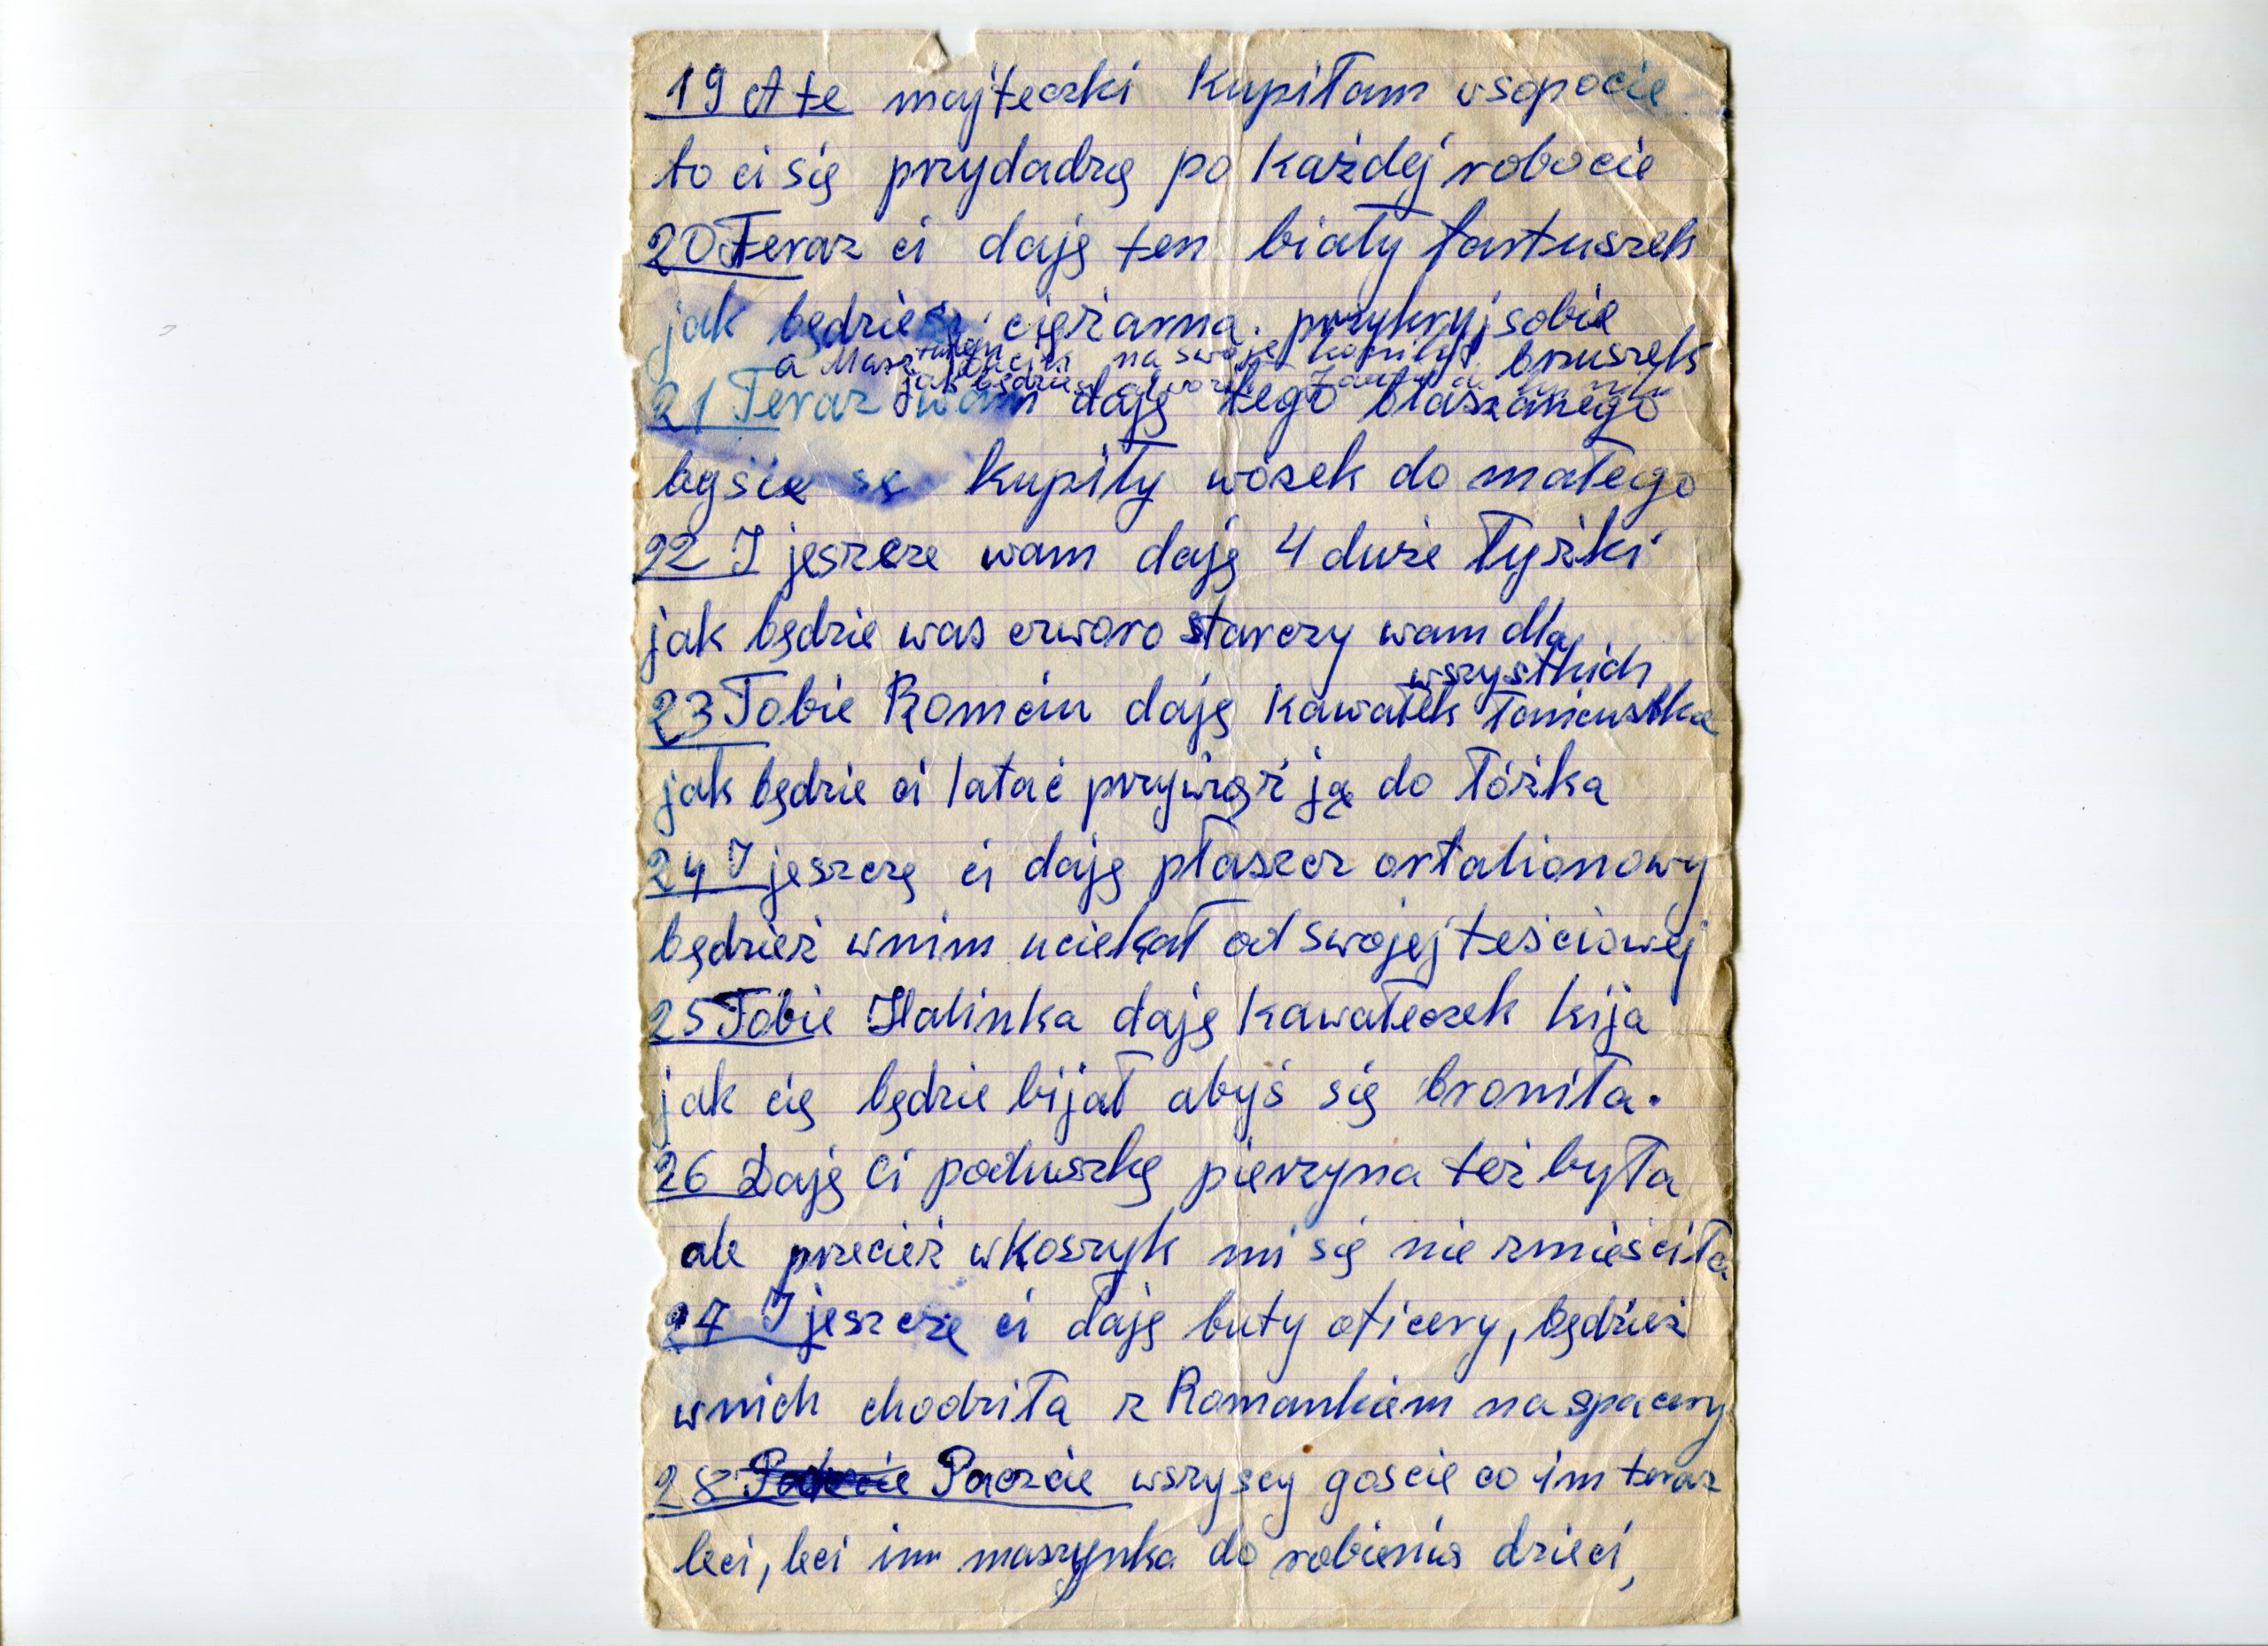 19 A te majteczki kupiłam w sopocie
to ci się przydadzą po każdej robocie
20 Teraz ci daję ten biały fartuszek
jak będziesz ciężarna. przykryj sobie
bruszek
a Masz na swoje
jak będzies
21 Teraz wam daję tego blaszanego
byście se kupiły wózek do małego
22 I jeszcze wam daję 4 duże łyżki
jak będzie was czworo starczy wam dla
wszystkich
23 Tobie Romciu daję kawałek łańcuszka
jak będzie ci latać przywiąż ją do łóżka
24 I jeszczę ci daję płaszcz ortalionowy
będzież wnim uciekał od swojej teściowej
25 Tobie Halinka daję kawałeczek kija
jak cię będzie bijał abyś się broniła.
26 Daję Ci poduszkę pierzyna też była
ale przecież wkoszyk mi się nie zmieściła
27 I jeszczę ci daję buty oficery, będzież
wnich chodziła z Romankiem na spacery
28 Paczcie wszyscy goscie co im teraz
leci, leci im maszynka do robienia dzieci,